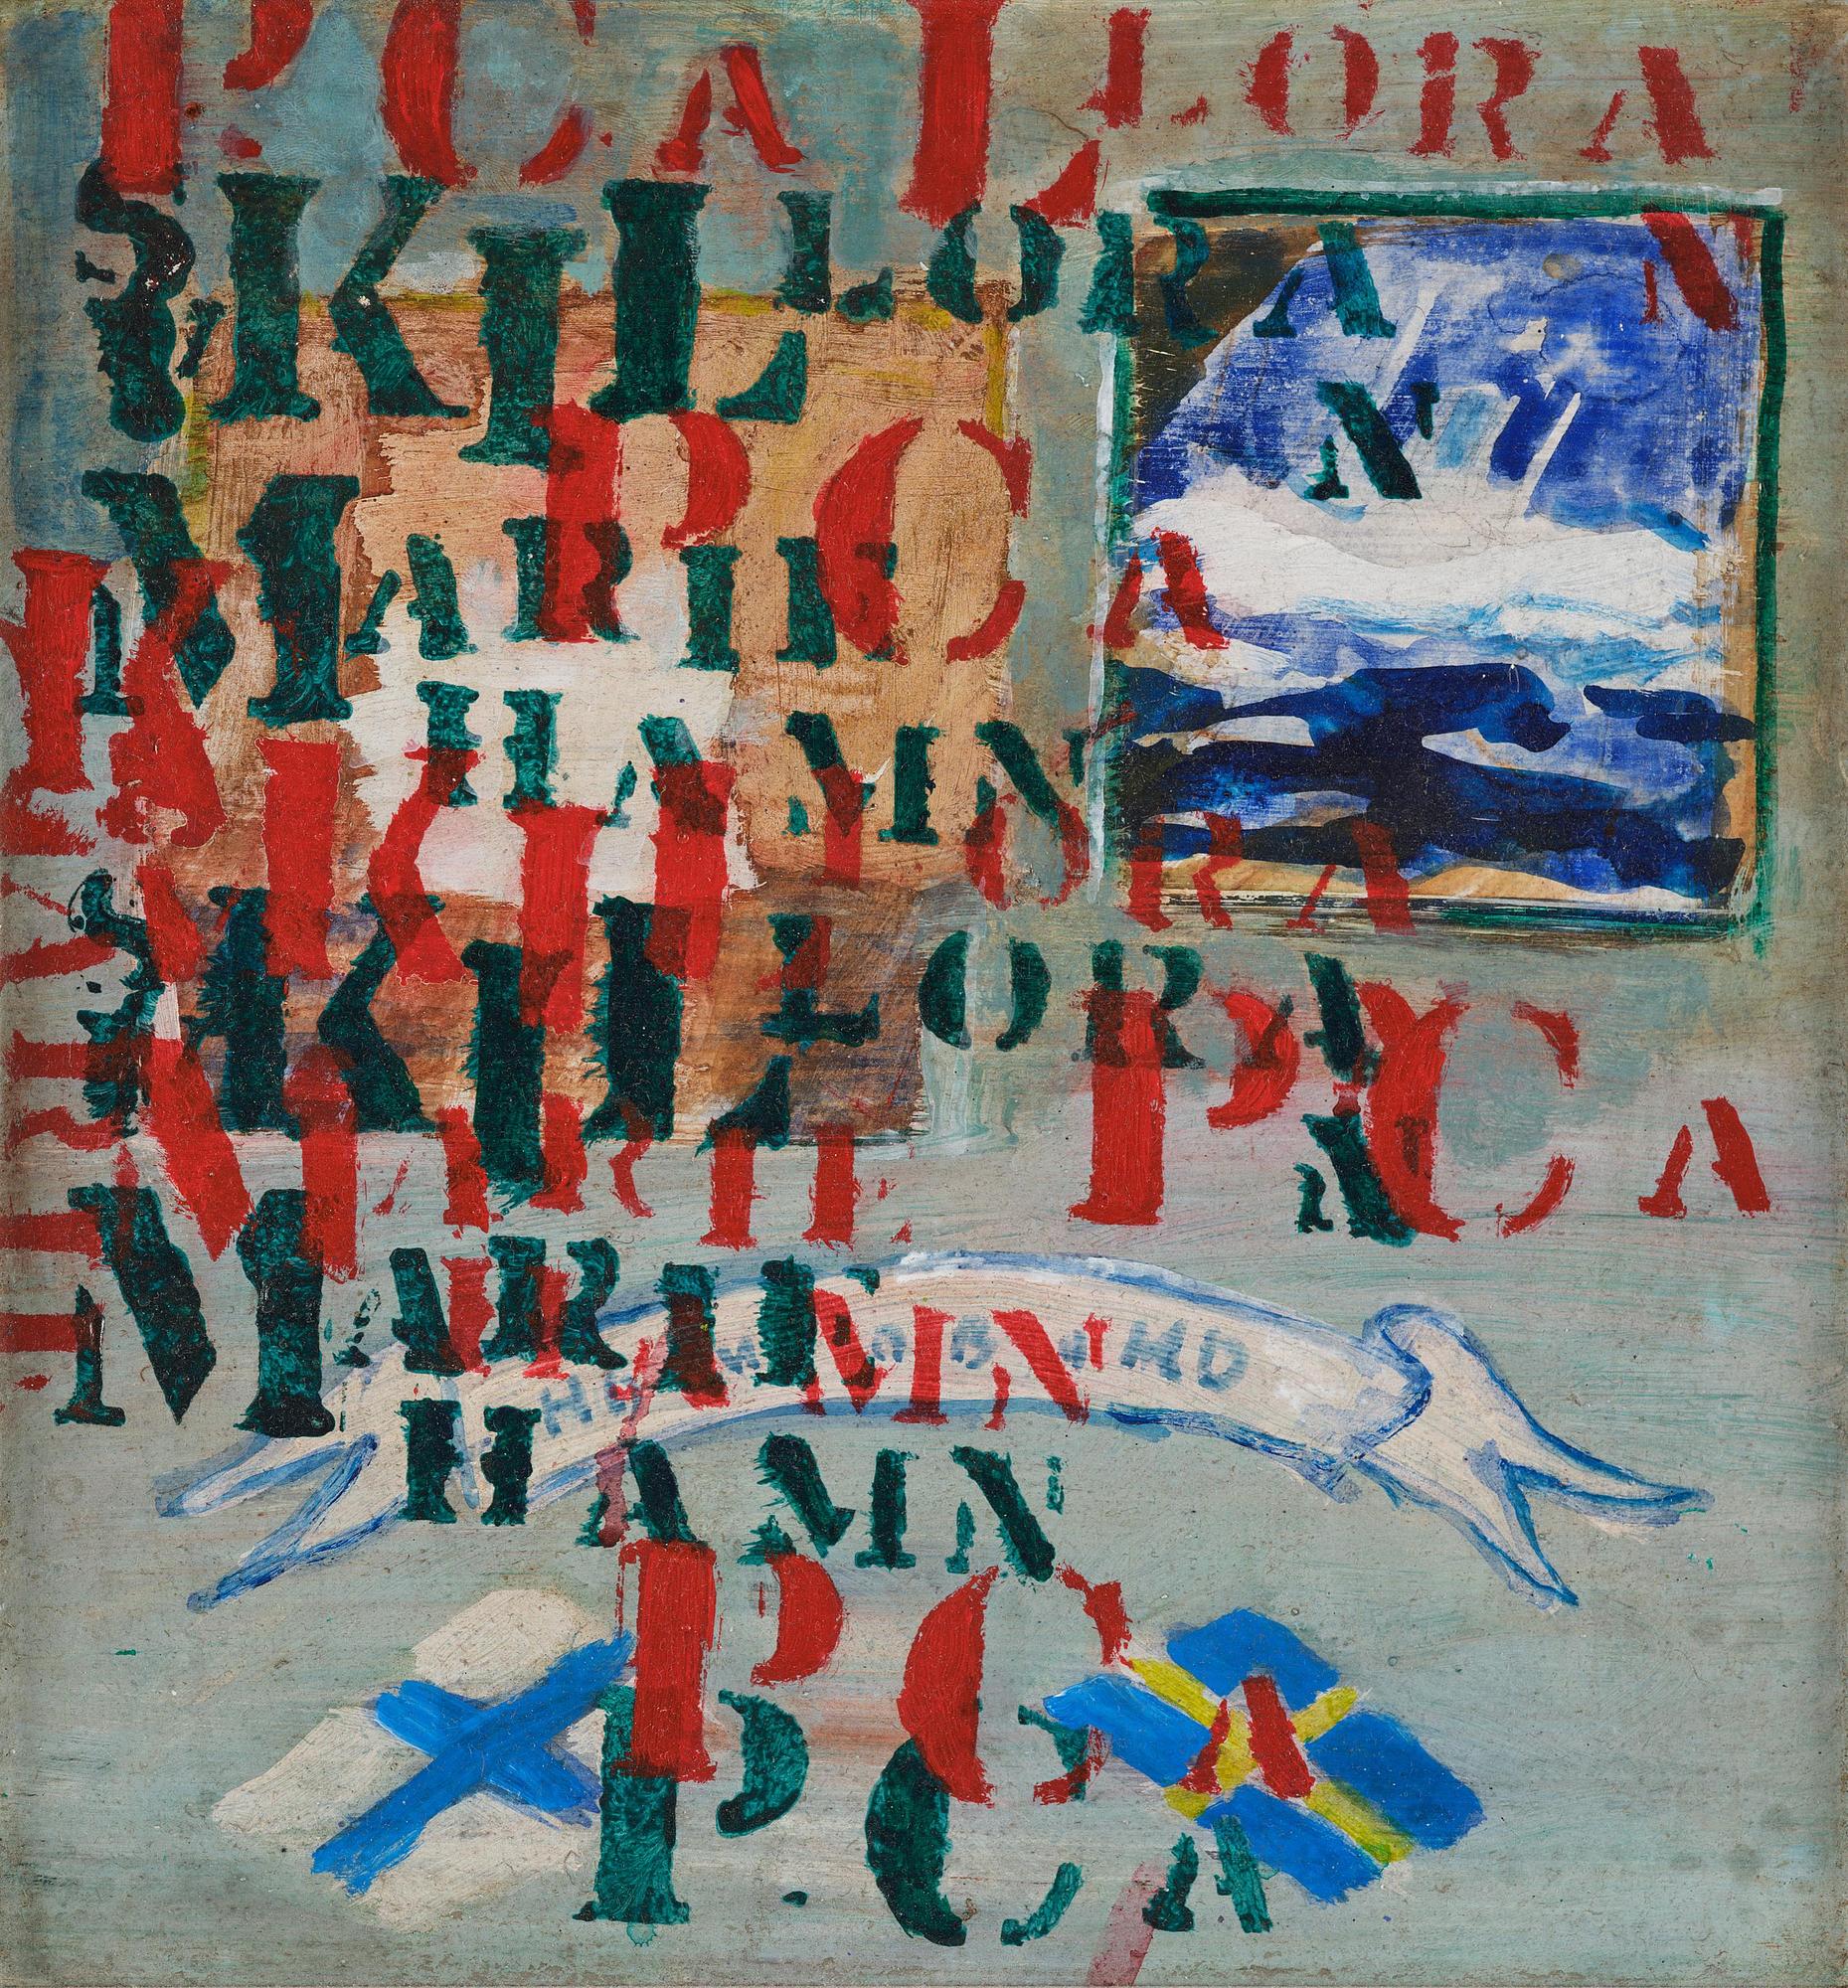 PCA LLORA
SKILLORA N
N
PCA
MARIE
HAMN
KILLORA
SKILLORA
N
PCA
MARIE
MARIE
HAMN
HAMN
PCA
PCA